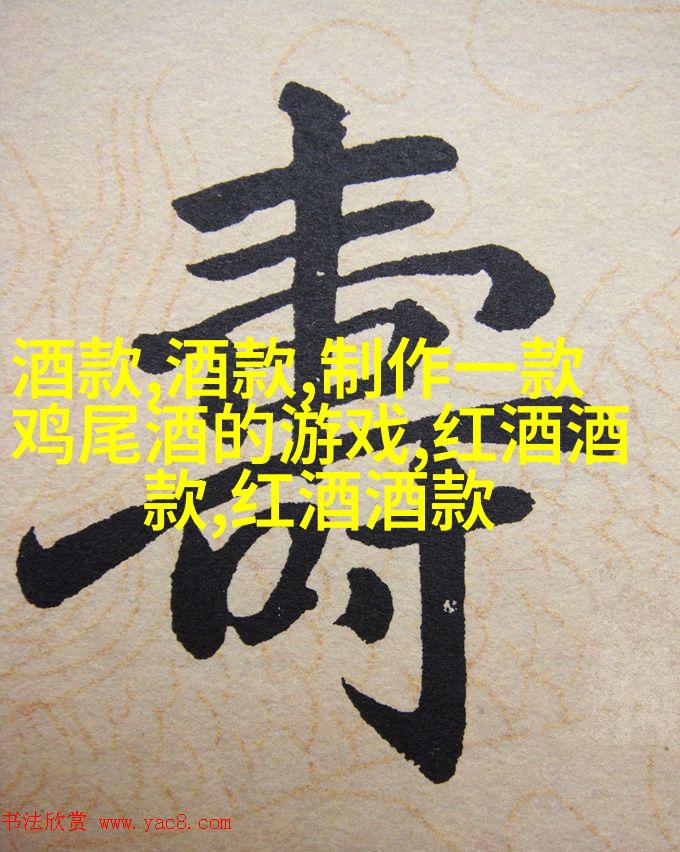 壽
酒款,酒款,制作一款
鸡尾酒的游戏,红酒酒
款,红酒酒款
书法欣赏 www.yac8.com